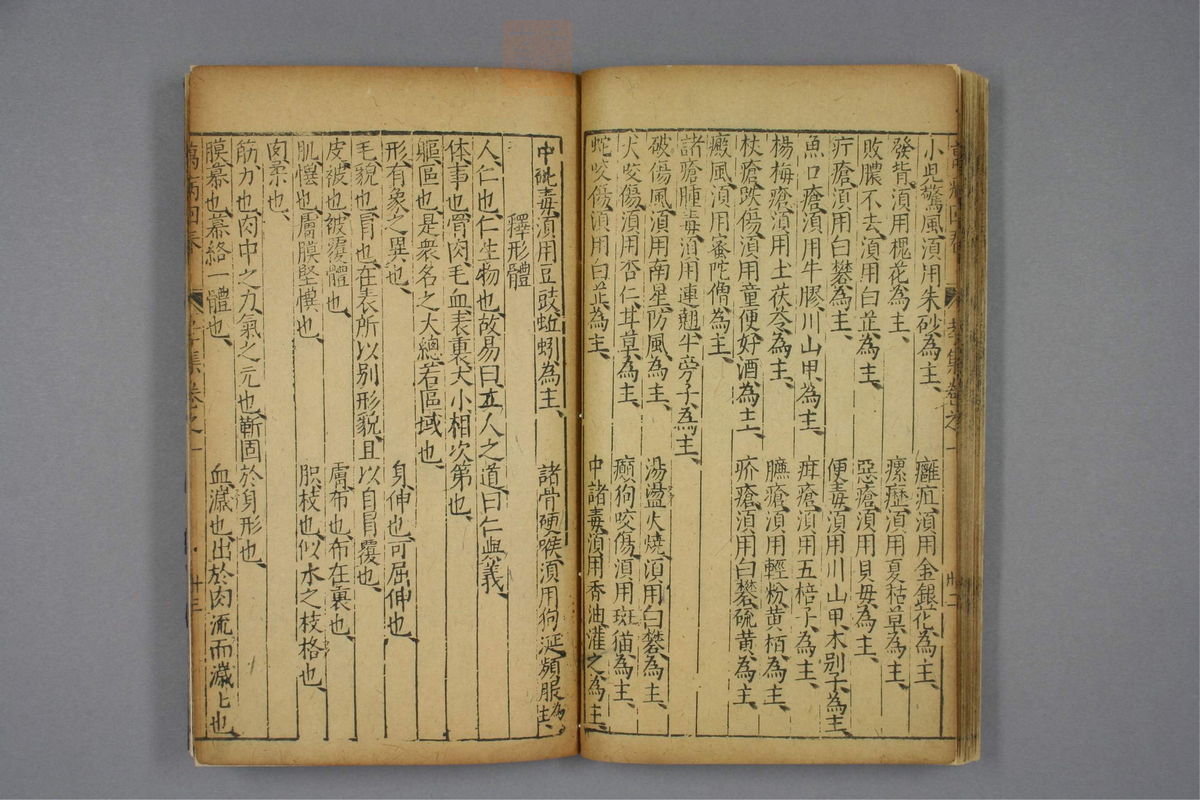 小兒驚風須用朱砂為主、 癰疽須用金銀花為主、
發背須用槐花為主、 瘰癧須用夏枯草為主、
敗膿不去須用白芷為主、 惡瘡須用貝母為主、
疔瘡須用白礬為主、 便毒須用川山甲木別子為主、
魚口瘡須用牛膠川山甲為主、 疳瘡須用五棓子為主、
楊梅瘡須用土茯苓為主、 臁瘡須用輕粉黄栢為主、
杖瘡跌傷須用童便好酒為主、 疥瘡須用白礬硫黄為主、
癜風須用蜜陀僧為主、
諸瘡腫毒須用連翹牛旁子為主、
破傷風須用南星防風為主、 湯盪火燒須用白礬為主、
犬咬傷須用杏仁甘草為主、 癲狗咬傷須用斑猫為主、
蛇咬傷須用白芷為主、 中諸毒須用香油灌之為主、
中砒毒須用豆豉蚯蚓為主、 諸骨硬喉須用狗涎頻服為主、
釋形體
人仁也仁生物也故易曰立人之道曰仁與義、
体事也骨肉毛血表裏大小相次第也、
軀區也是衆名之大總若區域也、
形有象之異也、 身伸也可屈伸也、
毛貌也冒也在表所以别形貌且以自冒覆也、
皮被也被覆體也、 膚布也布在裏也、
肌懻也膚膜堅懻也、 胑枝也似木之枝格也、
肉柔也、
筋力也肉中之力氣之元也靳固於身形也、
膜幕也幕絡一體也、 血濊也出於肉流而濊〻也、
萬病四春 卷之一 廿三